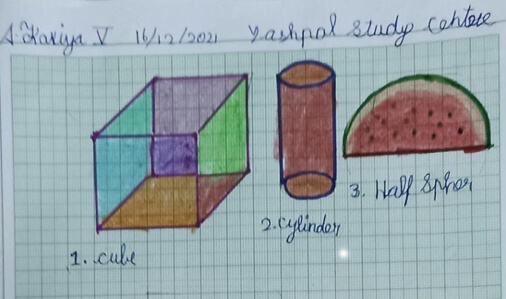 A. Kaviya V 16/12/2021 Yashpal study centere
1. cube
2. cylinder
3. Half spher